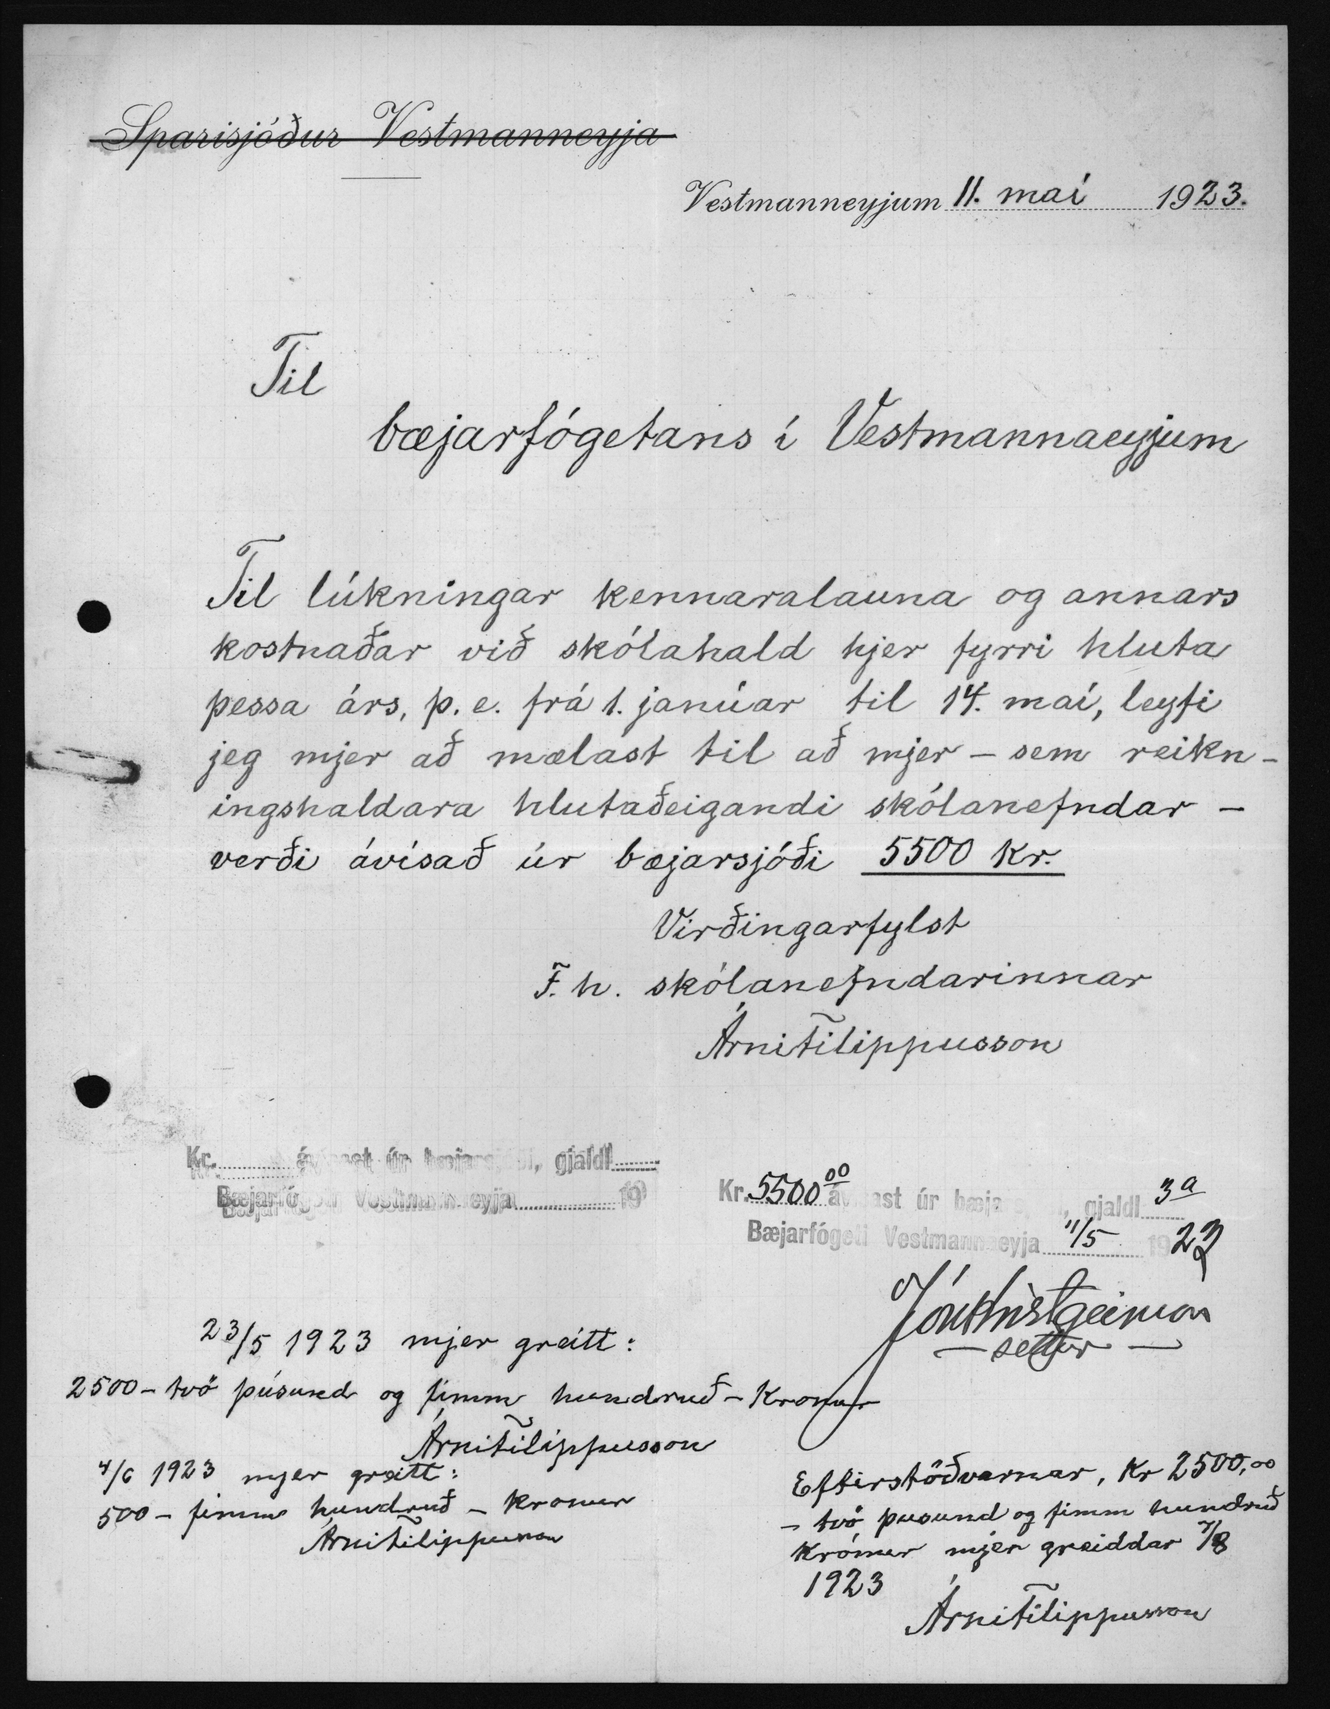 Sparisjóður Vestmanneyja
Vestmanneyjum 11. maí 1923.
Til
bæjarfógetans í Vestmannaeyjum
Til lúkningar kennaralauna og annars
kostnaðar við skólahald hjer fyrri hluta
þessa árs, þ. e. frá 1. janúar til 14. maí, leyfi
jeg mjer að mælast til að mjer – sem reikn-
ingshaldara hlutaðeigandi skólanefndar –
verði ávísað úr bæjarsjóði 5500 kr.
Virðingarfylst
F. h. skólanefndarinnar
Árni Filippusson
Kr. ávísast úr bæjarsjóði, gjaldl
Bæjarfógeti Vestmannaeyja 19
Kr. 5500 00 ávísast úr bæjarsjóði, gjaldl 3a
Bæjarfógeti Vestmannaeyja 11/5 1923
settur
23/5 1923 mjer greitt:
2500 – tvö þúsund og fimm hundruð – Kronur
Árni Filippusson
4/6 1923 mjer greitt:
500 – fimm hundruð – kronur
Árni Filippusson
Eftirstöðvarnar, Kr 2500,00
– tvö þusund og fimm hundruð
Krónur mjer greiddar 7/8
1923
Árni Filippusson